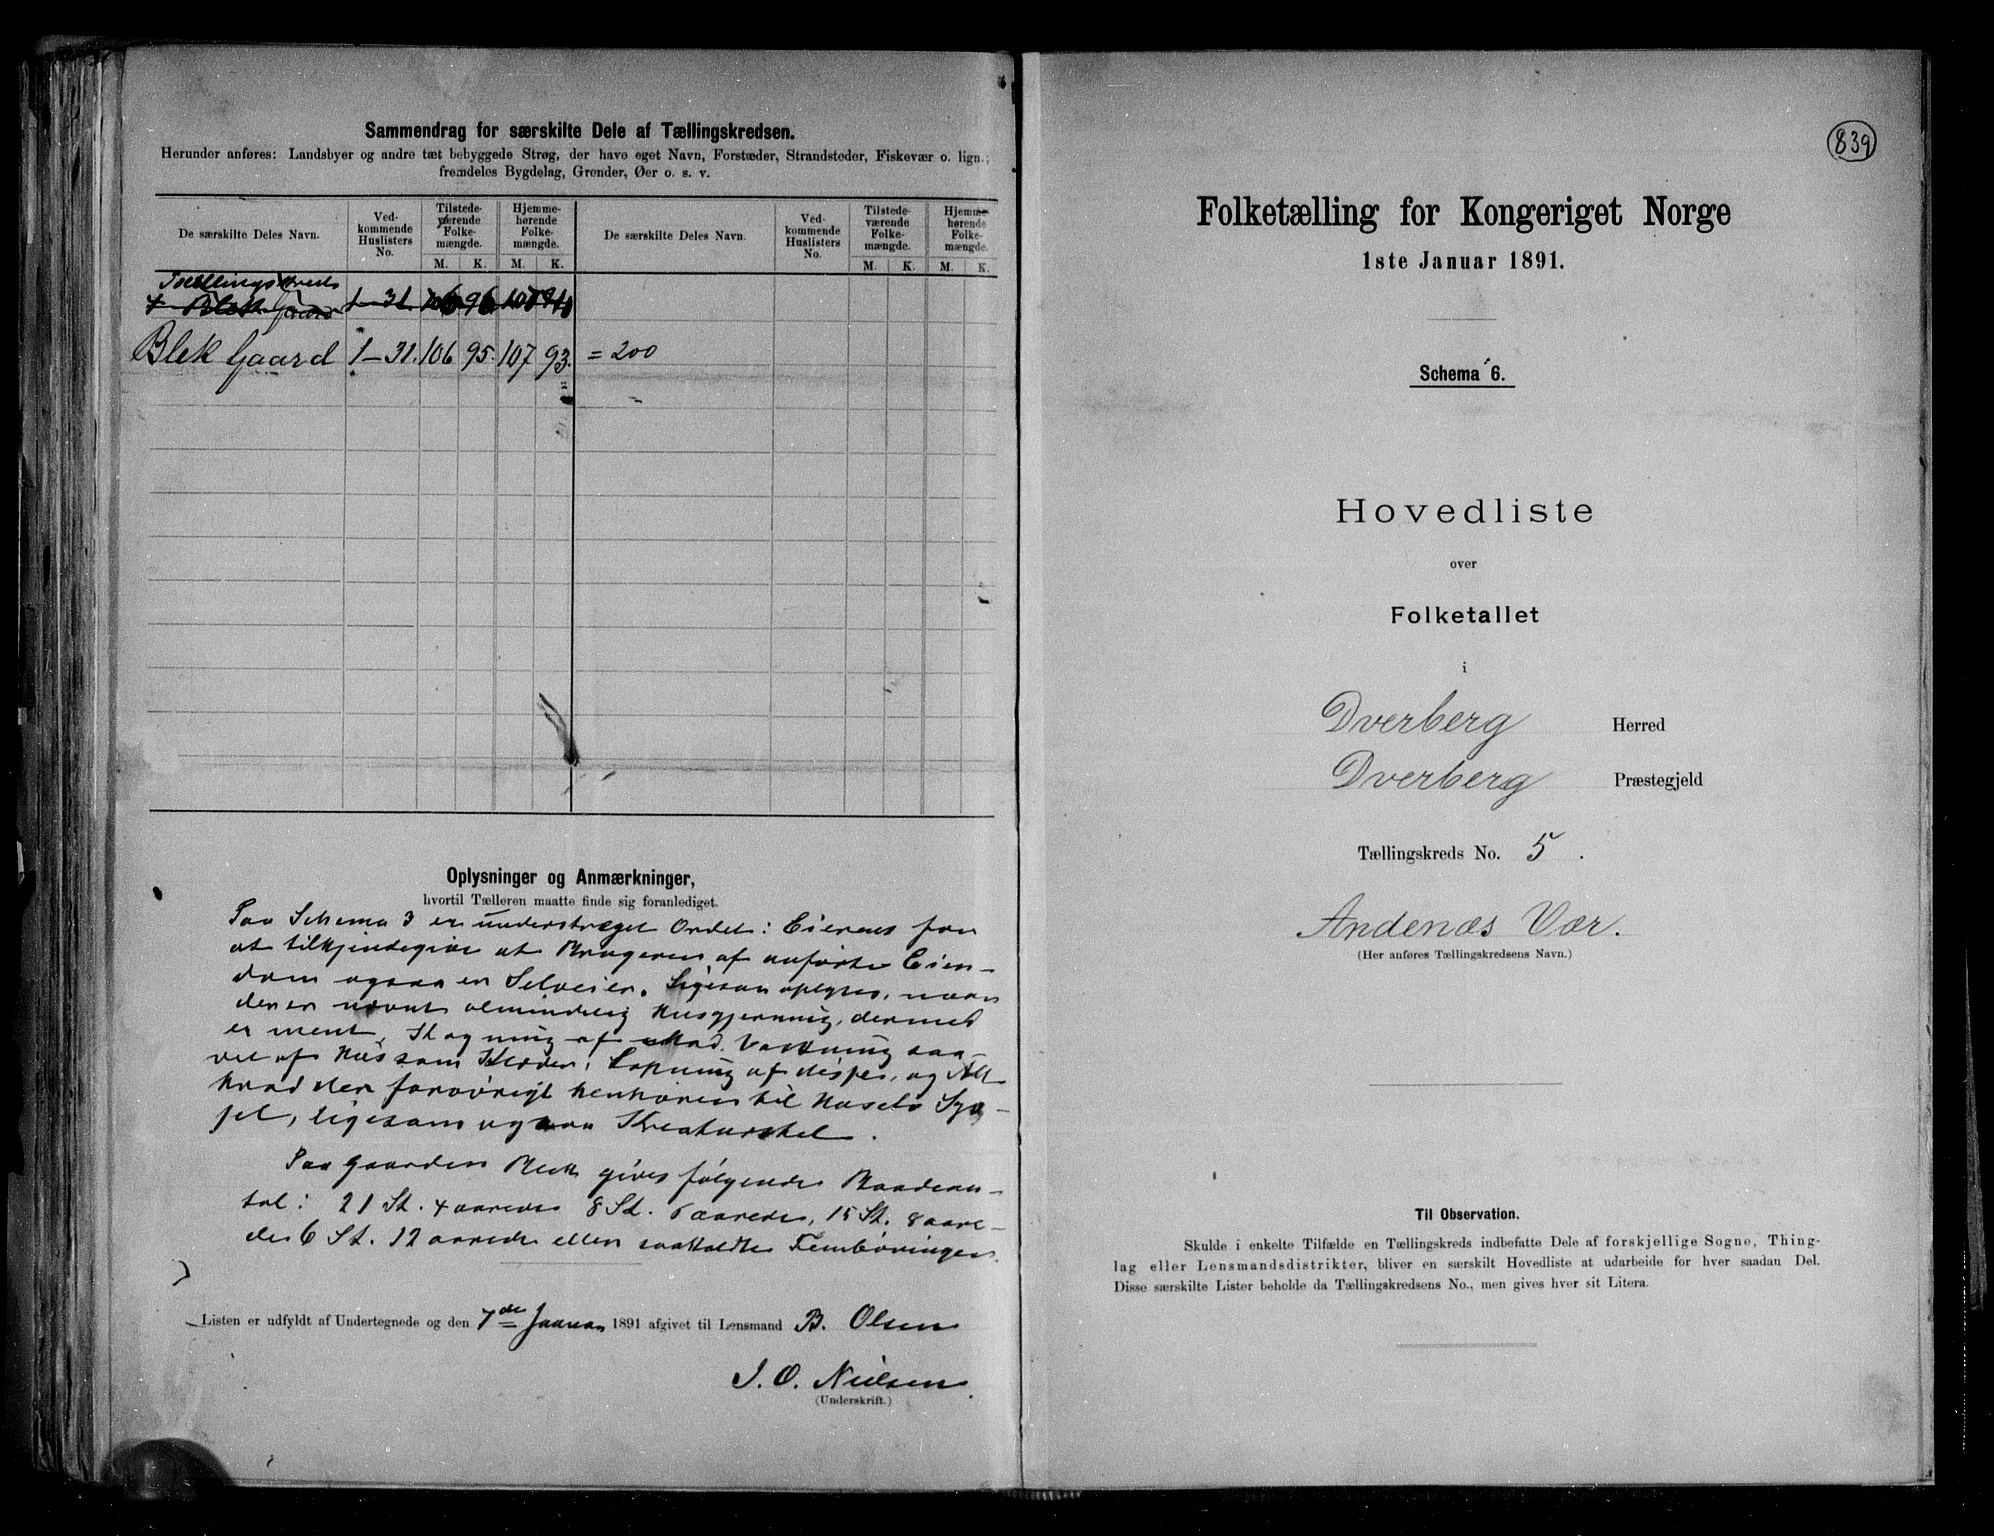 Sammendrag for særskilte Dele af Tællingskredsen.
Herunder anføres: Landsbyer og andre tæt bebyggede Strøg, der have eget Navn, Forstæder, Strandsteder, Fiskevær o. lign.;
fremdeles Bygdelag, Grender, Øer o. s. v.
De særskilte Deles Navn.
Ved-
kommende
Huslisters
No.
Tilstede-
værende
Folke-
mængde.
Hjemme-
hørende
Folke-
mængde.
De særskilte Deles Navn.
Ved-
kommende
Huslisters
No.
Tilstede-
værende
Folke-
mængde.
Hjemme-
hørende
Folke-
mængde.
M. K. M. K. M. K. M. K.
Tællingskreds
Blek Gaard 1-31. 106 96
Blek Gaard 1-31. 106 95. 107 93. = 200
Oplysninger og Anmærkninger,
hvortil Tælleren maatte finde sig foranlediget.
Paa Schema 3 er understræget Ordet: Eierens for
at tilkjendegive at Brugeren af anførte Eien-
dom ogsaa er Selveier. Ligesaa oplyses, naar
der er nævnt almindelig Husgjerning, dermed
er ment, Kogning af Mad. Vaskning saa-
vel af Hus som Klæder,
hvad der forøvrigt henhører til Husets Sys-
sel, ligesom ogsaa Kreaturstel.
Paa Gaarden Blek gives følgende Baadean-
tal: 21 St. 4 aarede 8 St. 6 aarede, 15 St. 8 aare-
de 6 St. 12 aarede eller saakaldte Fembøringer.
Listen er udfyldt af Undertegnede og den 7de Januar 1891 afgivet til Lensmand B. Olsen
J. O. Nielsen
(Underskrift.)
839
Folketælling for Kongeriget Norge
1ste Januar 1891.
Schema 6.
Hovedliste
over
Folketallet
i
Dverberg Herred
Dverberg Præstegjeld
Tællingskreds No. 5.
Andenæs Vær.
(Her anføres Tællingskredsens Navn.)
Til Observation.
Skulde i enkelte Tilfælde en Tællingskreds indbefatte Dele af forskjellige Sogne, Thing-
lag eller Lensmandsdistrikter, bliver en særskilt Hovedliste at udarbeide for hver saadan Del.
Disse særskilte Lister beholde da Tællingskredsens No., men gives hver sit Litera.